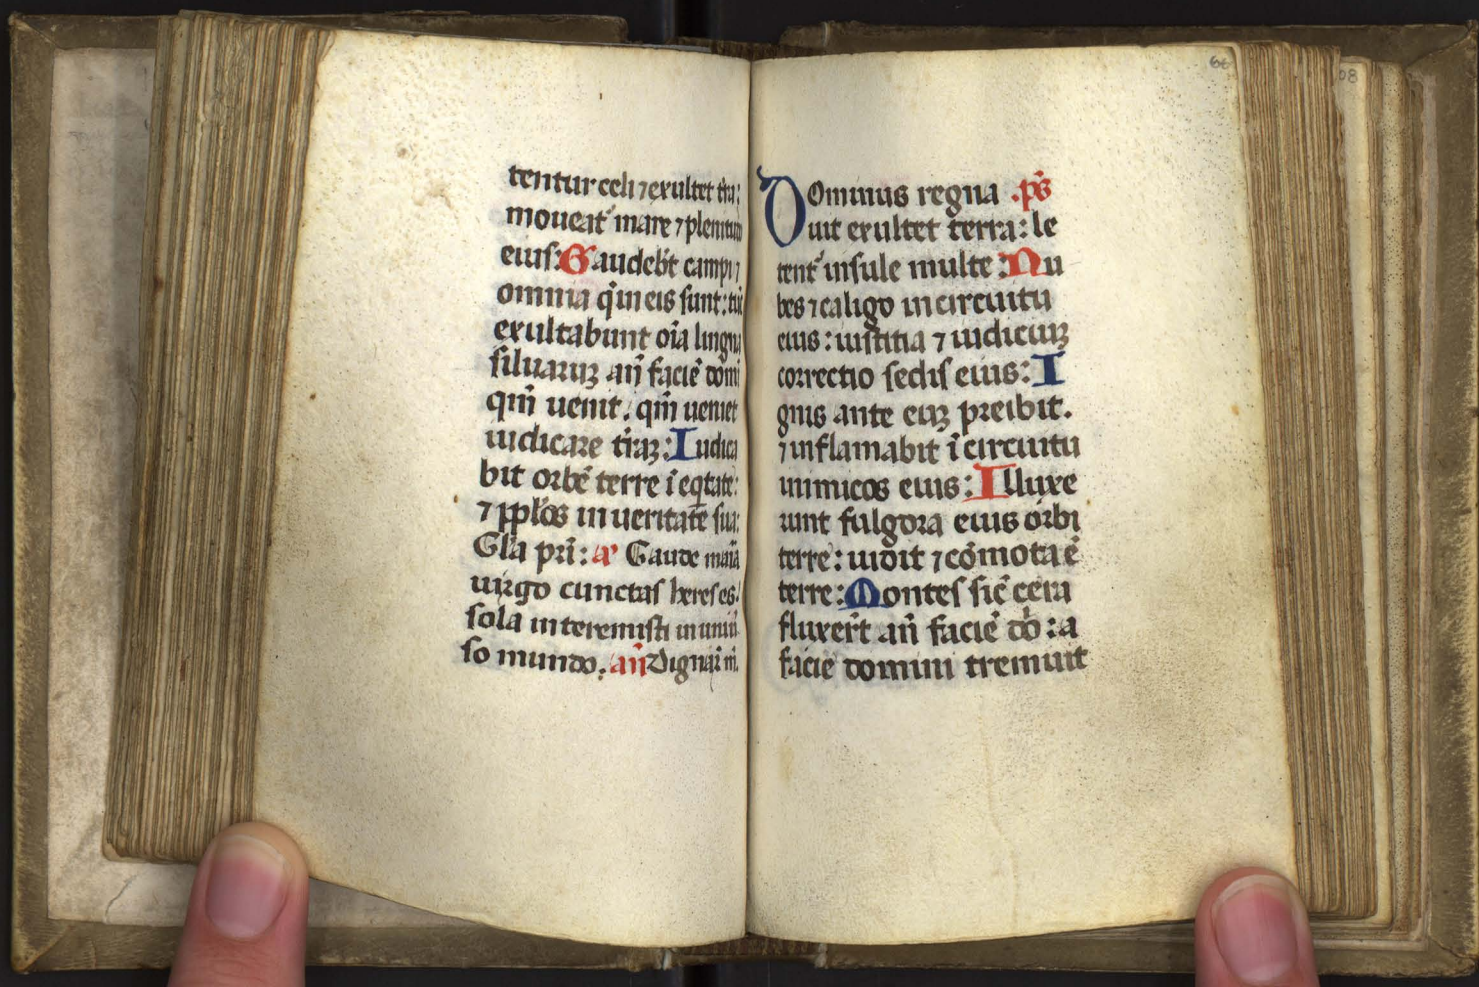 tentur celi ⁊ exultet t̄ra:
moueat᷑ mare ⁊ plenitudo
eius: Gaudeb̄t campi ⁊
omnia q̄ in eis sunt: tūc
exultabunt oīa lingna
siluaruꝫ an̄ faciē domi
qm̄ uenit. qm̄ ueniet
iudicare t̄raꝫ: Iudica
bit orbē terre ī eq̄tate:
⁊ pp̄los in ueritate sua:
Gl̄a pr̄i: a᷑ Gaude maīa
uirgo cunctas hereses:
sola interemisti in uniū
so mundo. an̄ Dignar̄ m̄.
66
08
Dominus regna .ps̄
uit exultet terra: le
tent᷑ insule multe: Nu
bes ⁊ caligo in circuitu
eius: iustitia ⁊ iudiciuꝫ
correctio sedis eius: I
gnis ante euꝫ preibit.
⁊ inflamabit ī circuitu
inimicos eius: Illuxe
runt fulgora eius orbi
terre: uidit ⁊ cōmota ē
terre: Montes sic̄ cera
fluxer̄t an̄ faciē dō: a
facie domini tremuit